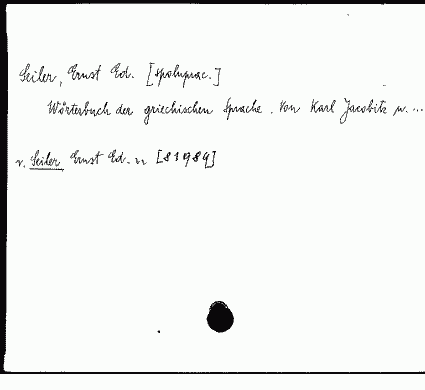 Seiler, Ernst Ed. [spoluprac.]
Wörterbuch der griechischen Sprache. Von Karl Jacobitz u. ...
v. Seiler Ernst Ed. [81989]